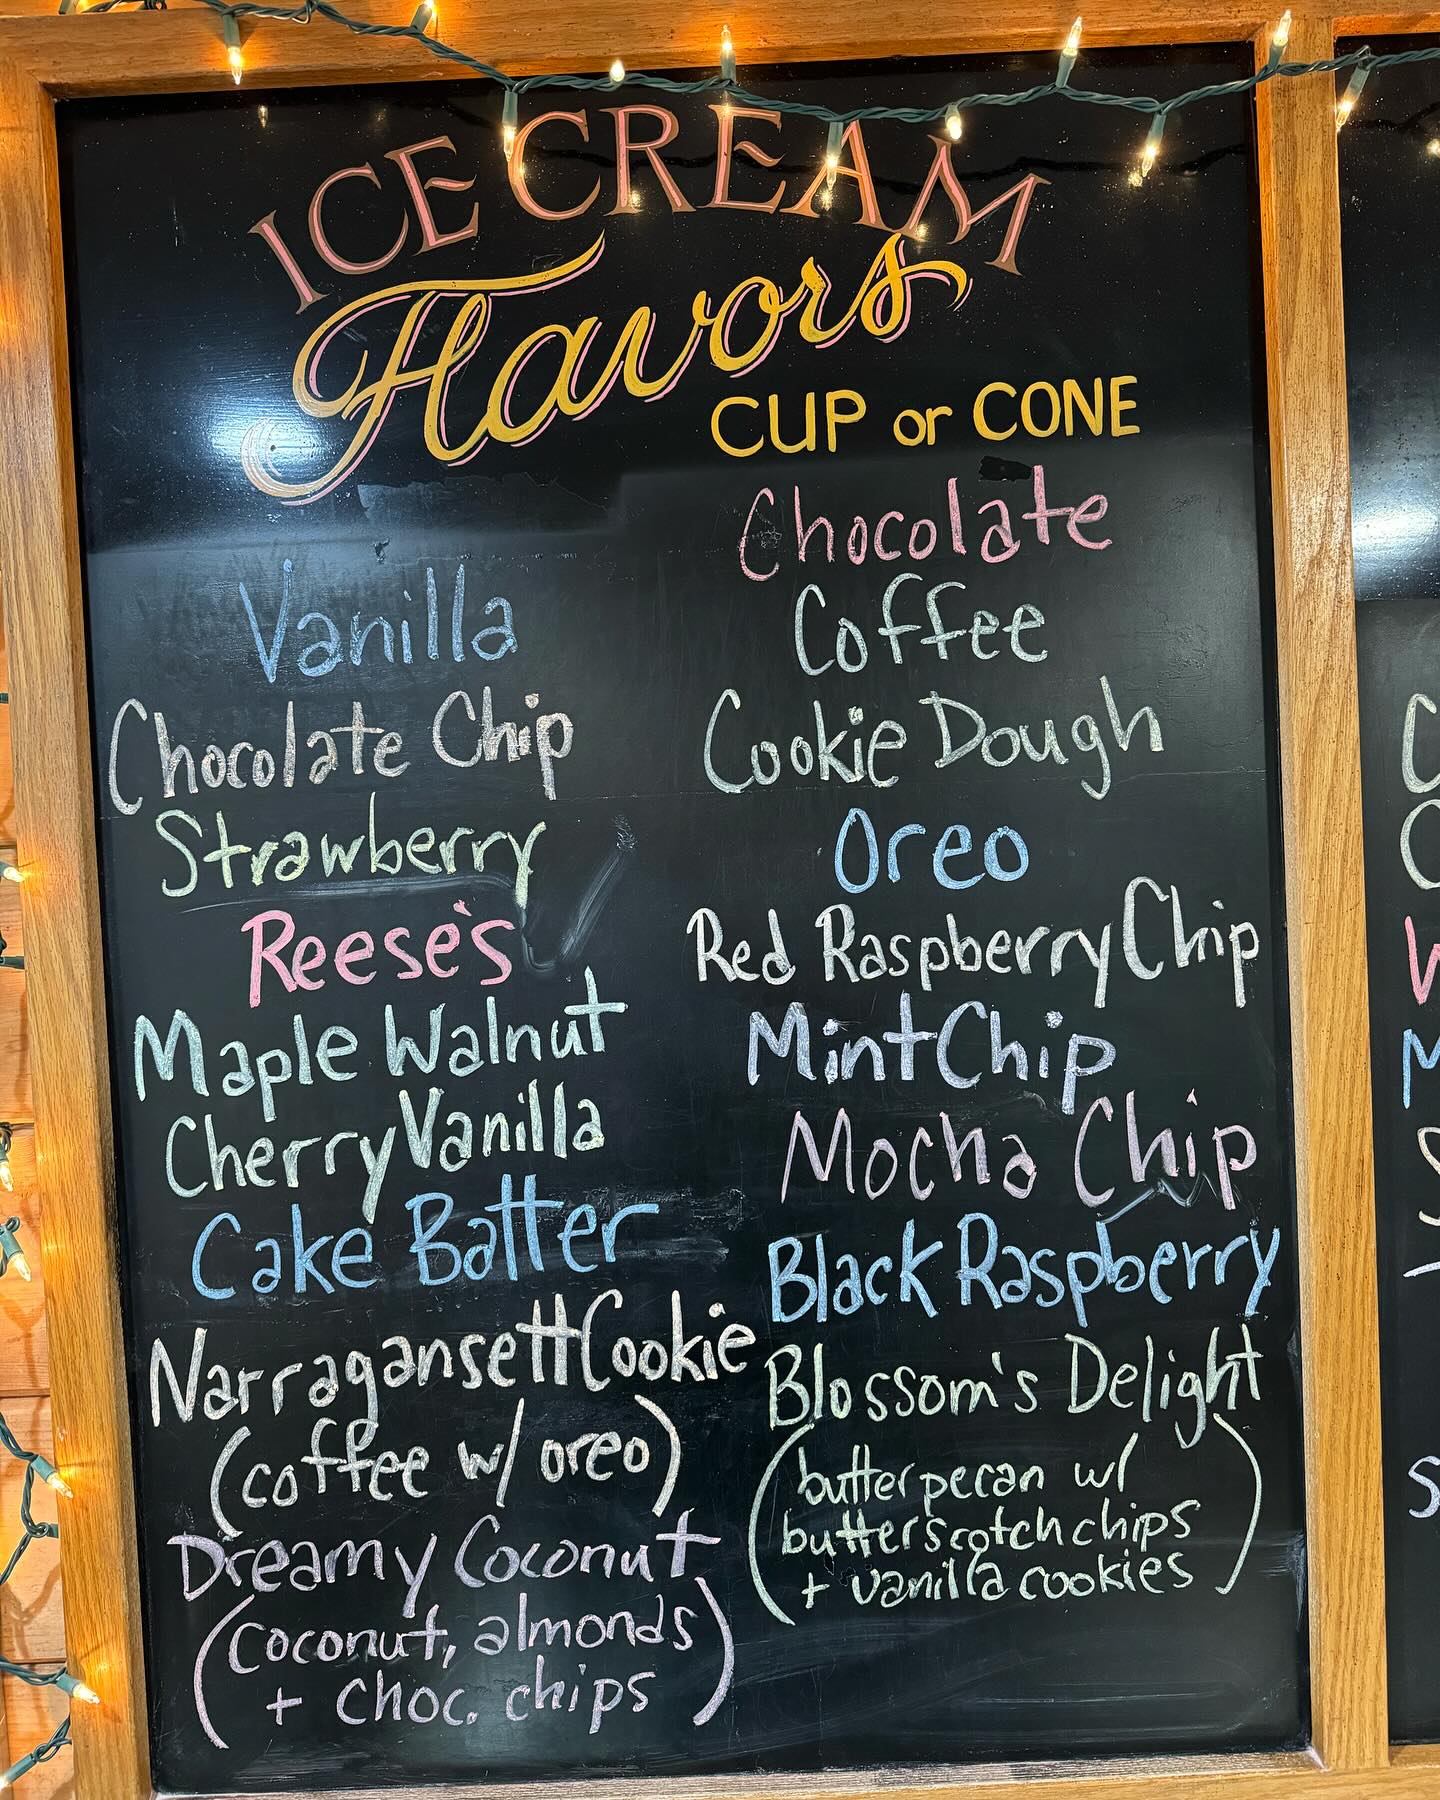 ICE CREAM
Flavors
CUP or CONE
Vanilla
Chocolate Chip
Strawberry
Reese's
Maple Walnut
Cherry Vanilla
Cake Batter
Narragansett Cookie
(coffee w/ oreo)
Dreamy Coconut
(coconut, almonds
+ choc. chips)
Chocolate
Coffee
Cookie Dough
Oreo
Red Raspberry Chip
Mint Chip
Mocha Chip
Black Raspberry
Blossom's Delight
(butter pecan w/
butterscotch chips
+ vanilla cookies)